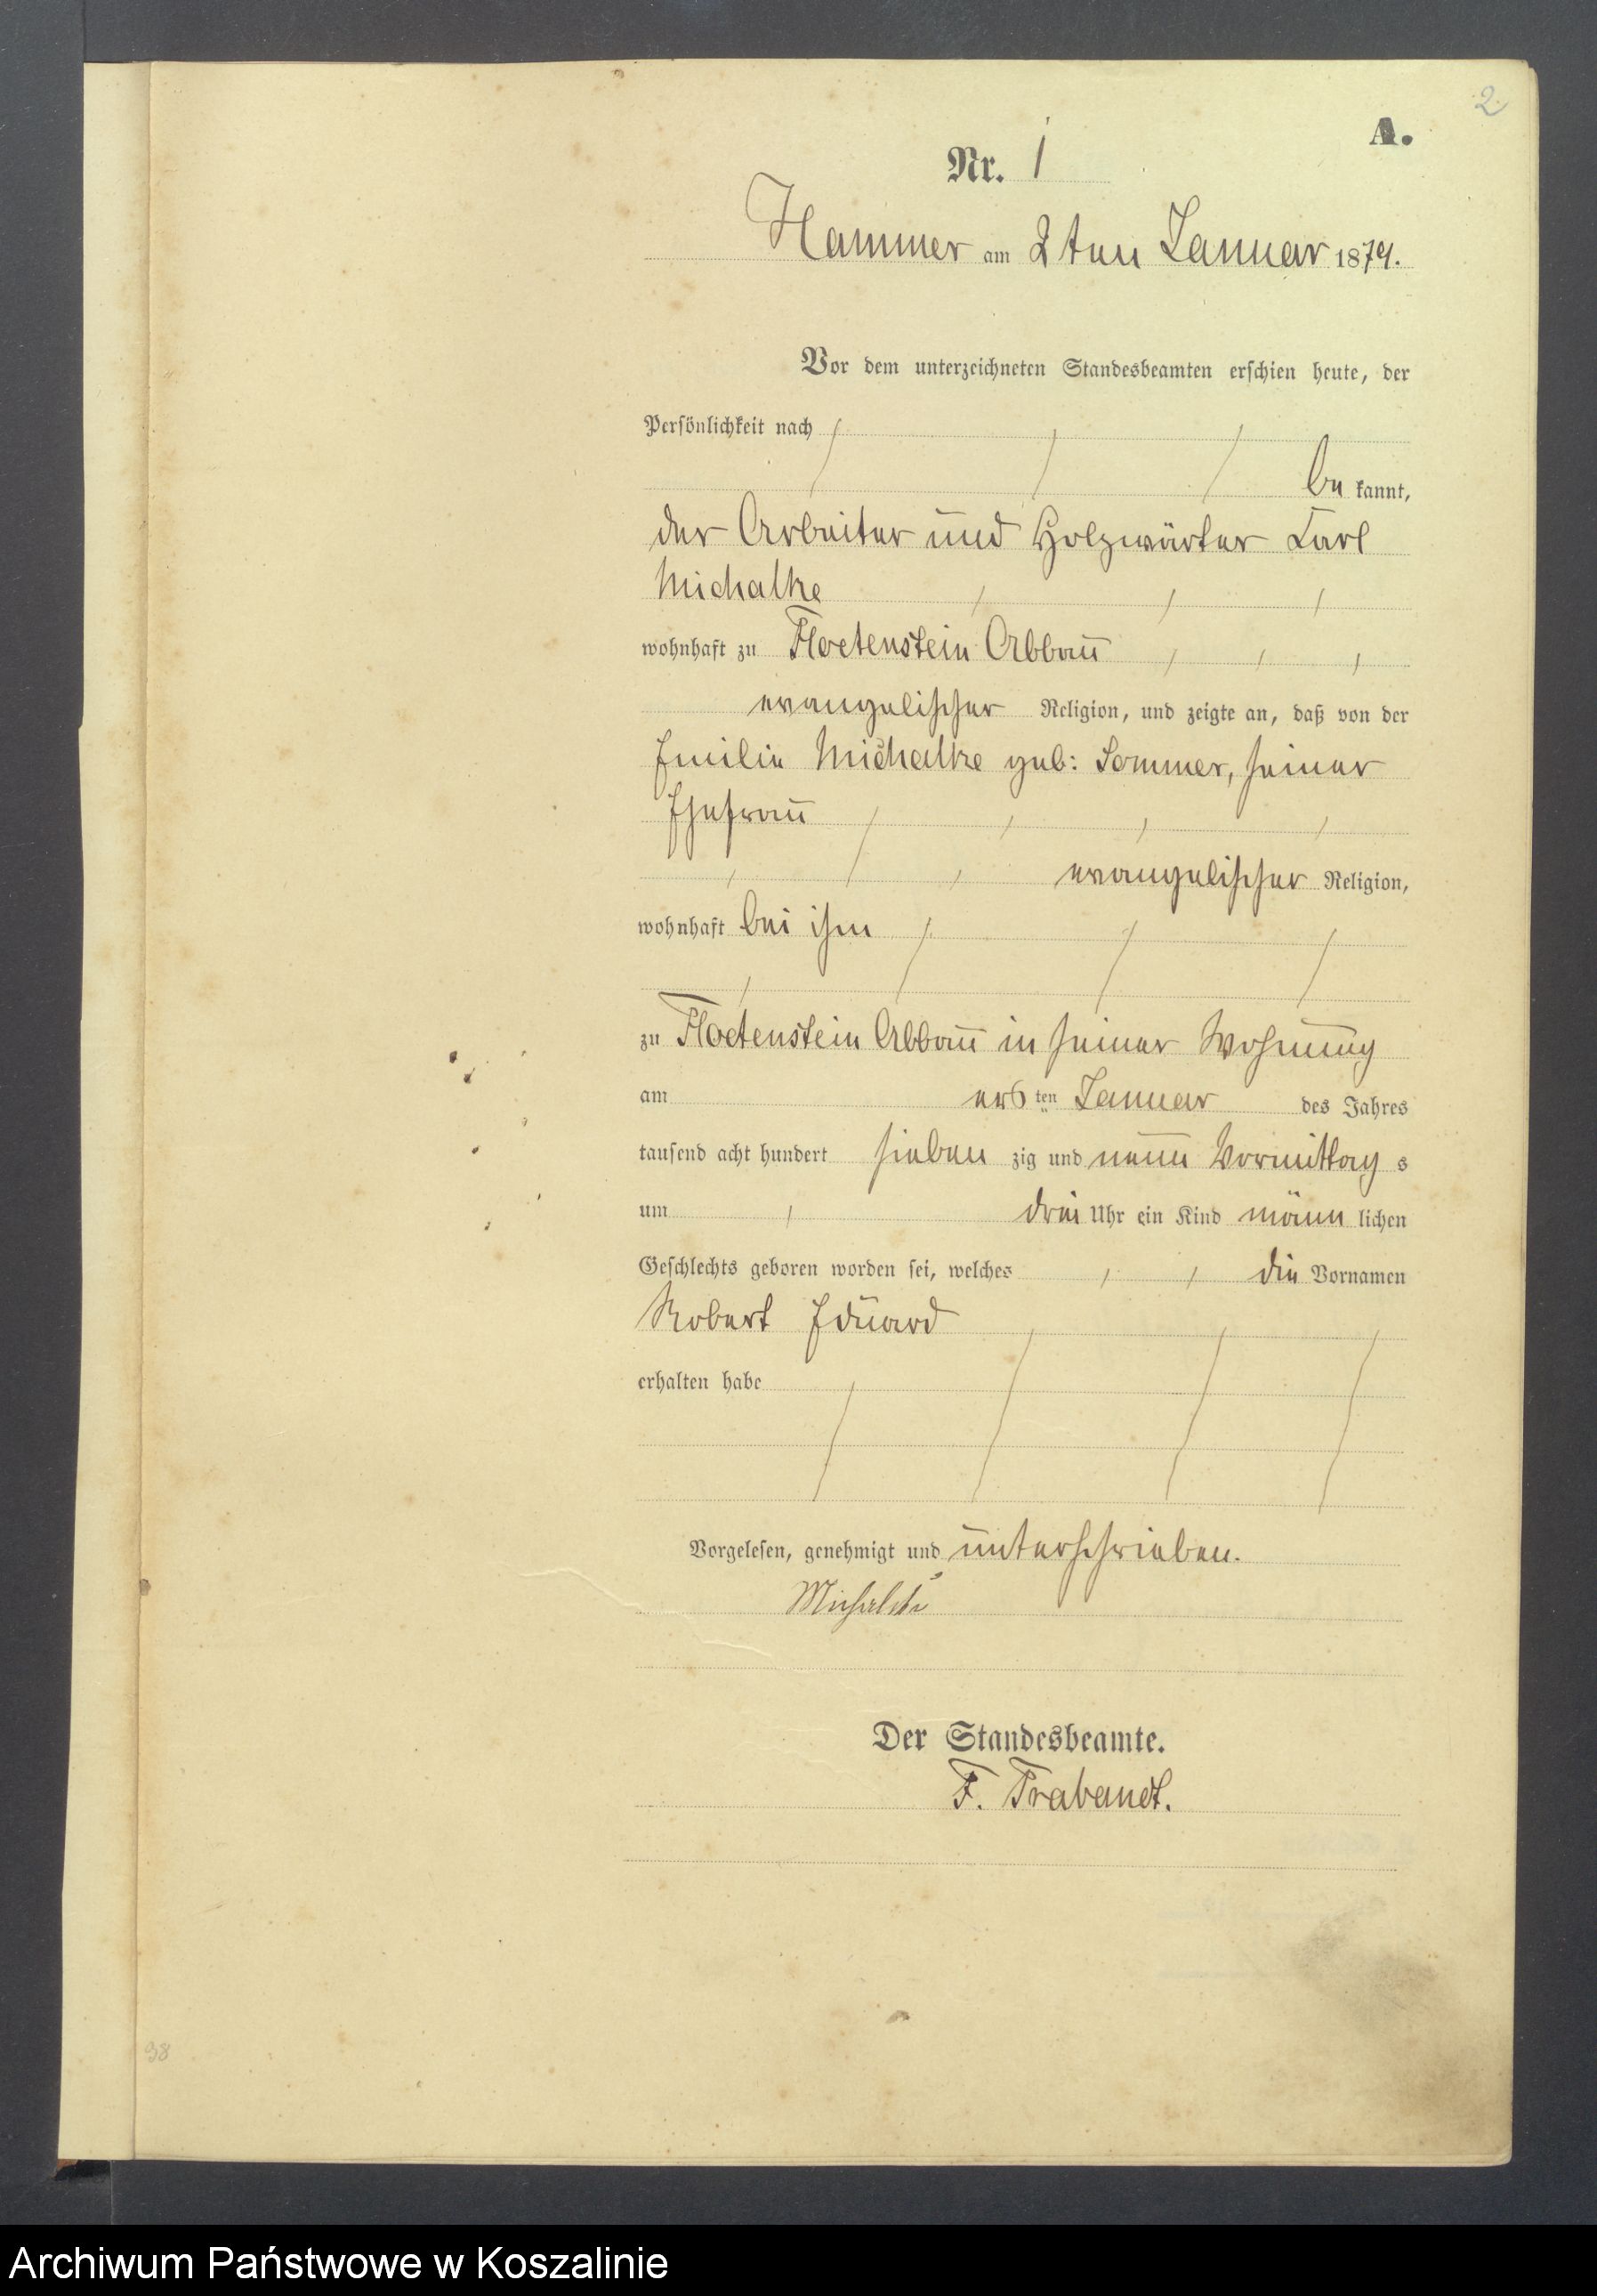 2.
A.
Nr. 1
Hammer am 2ten Januar 1879.
Vor dem unterzeichneten Standesbeamten erschien heute, der
Persönlichkeit nach
be kannt,
der Arbeiter und Holzwärter Carl
Michalke
wohnhaft zu Floetenstein Abbau
evangelischer Religion, und zeigte an, daß von der
Emilie Michalke geb: Sommer, seiner
Ehefrau
evangelischer Religion,
wohnhaft bei ihm
zu Floetenstein Abbau in seiner Wohnung
am ersten Januar des Jahres
tausend acht hundert sieben zig und neun Vormittag s
um drei Uhr ein Kind männ lichen
Geschlechts geboren worden sei, welches die Vornamen
Robert Eduard
erhalten habe
Vorgelesen, genehmigt und unterschrieben.
Michalke
Der Standesbeamte.
F. Trabandt.
98
Archiwum Państwowe w Koszalinie